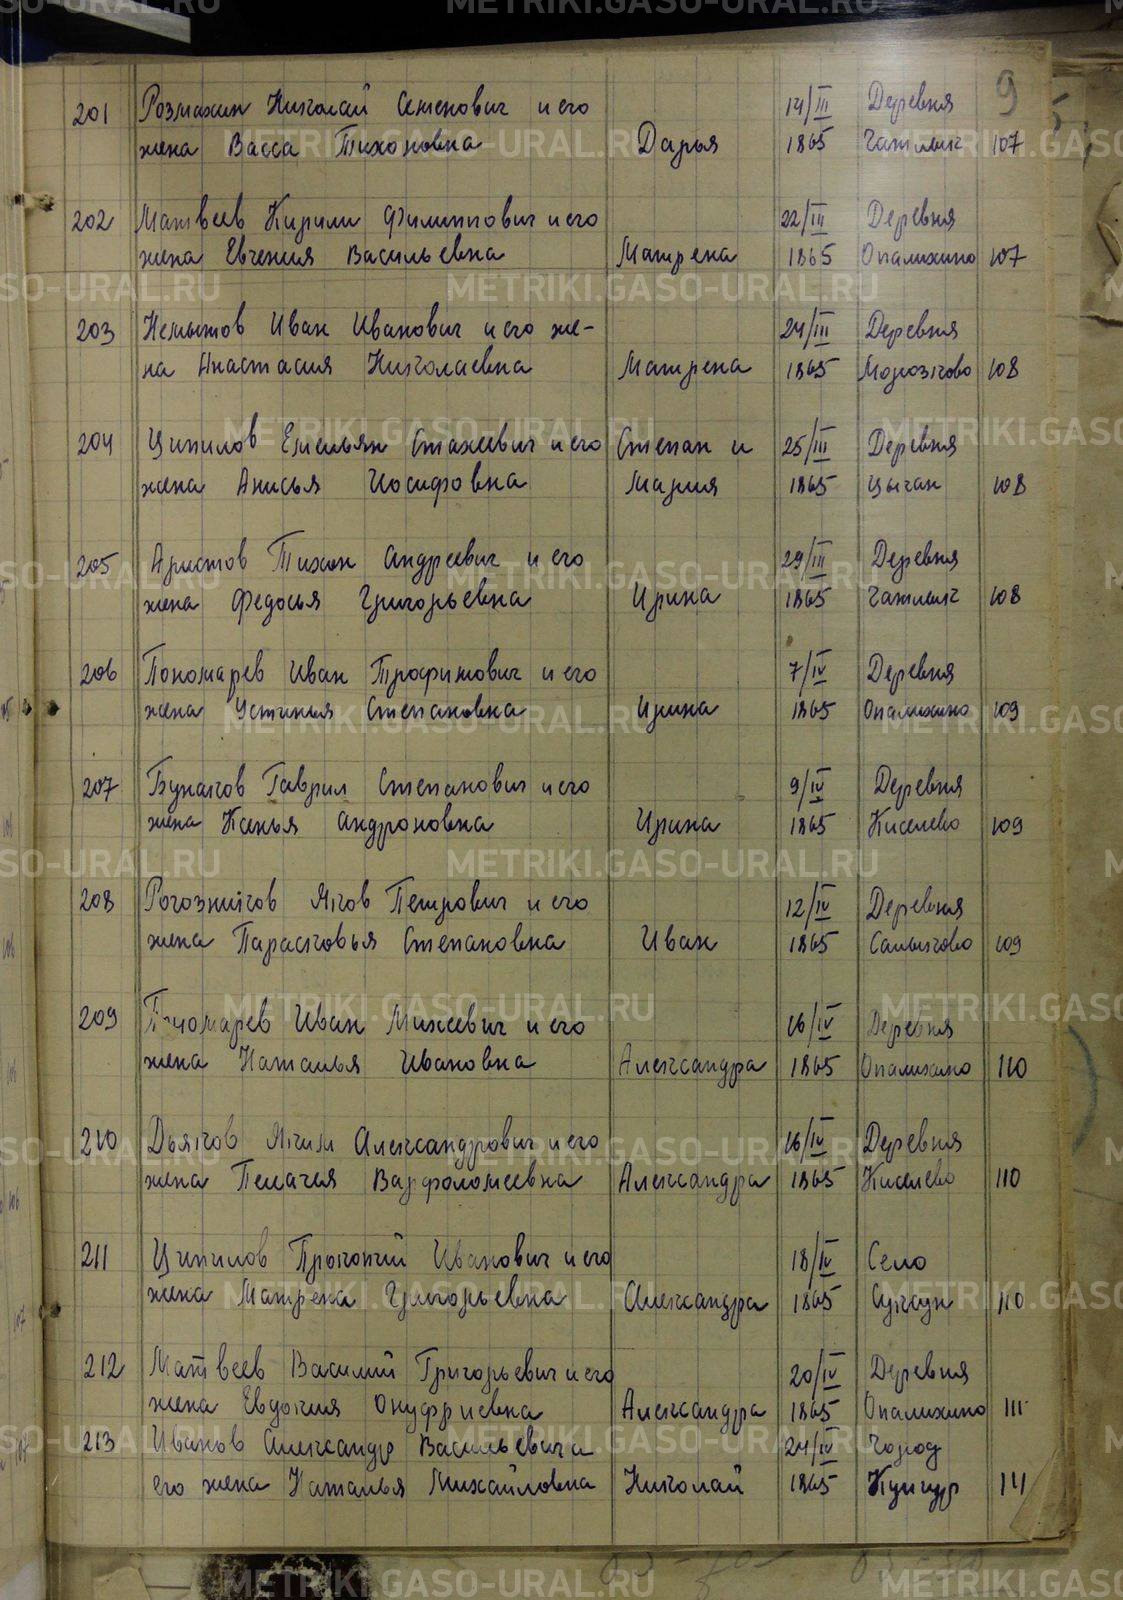 9
201 Розмахин Николай Семенович и его 14/III Деревня
жена Васса Тихоновна Дарья 1865 Чатлык 107
202 Матвеев Кирилл Филиппович и его 22/III Деревня
жена Евгения Васильевна Матрена 1865 Опалихино 107
203 Немытов Иван Иванович и его же- 24/III Деревня
на Анастасия Николаевна Матрена 1865 Морозково 108
204 Ципилов Емельян Стахеевич и его Степан и 25/III Деревня
жена Анисья Иосифовна Мария 1865 Цыган 108
205 Аристов Тихон Андреевич и его 29/III Деревня
жена Федосья Григорьевна Ирина 1865 Чатлык 108
206 Пономарев Иван Трофимович и его 7/IV Деревня
жена Устинья Степановна Ирина 1865 Опалихино 109
207 Бунаков Гаврил Степанович и его 9/IV Деревня
жена Ксенья Андроновна Ирина 1865 Киселево 109
208 Рогозников Яков Петрович и его 12/IV Деревня
жена Парасковья Степановна Иван 1865 Саныково 109
209 Пономарев Иван Михеевич и его 16/IV Деревня
жена Наталья Ивановна Александра 1865 Опалихино 110
210 Дьяков Яким Александрович и его 16/IV Деревня
жена Пелагея Варфоломеевна Александра 1865 Киселево 110
211 Ципилов Прокопий Иванович и его 18/IV Село
жена Матрена Григорьевна Александра 1865 Суксун 110
212 Матвеев Василий Григорьевич и его 20/IV Деревня
жена Евдокия Онуфриевна Александра 1865 Опалихино 111
213 Иванов Александр Васильевич и 24/IV город
его жена Наталья Михайловна Николай 1865 Кунгур 111
METRIKI.GASO-URAL.RU